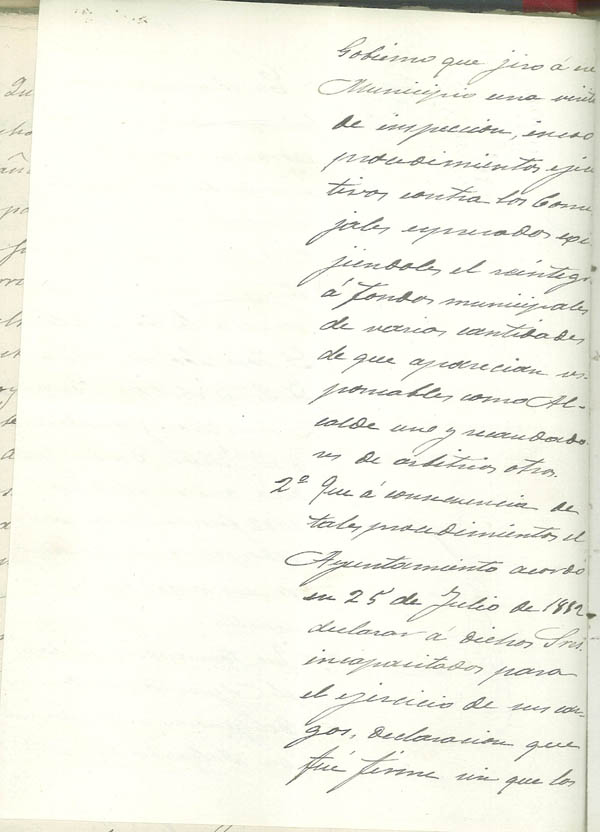 Gobierno que jiro á su
Municipio una visita
de inspeccion, incoó
procedimientos ejecu
tivos contra los Conce
jales espresados exi-
jiendoles el reintegr
á fondos municipales
de varias cantidades
de que aparecian res-
ponsables como Al-
calde uno y recaudado
res de arbitrios otros.
2º Que á consecuencia de
tales procedimientos el
Ayuntamiento acordó
en 25 de Julio de 1882
declarar á dichos Sres.
incapacitados para
el ejercicio de sus car-
gos, declaracion que
fué firme sin que los